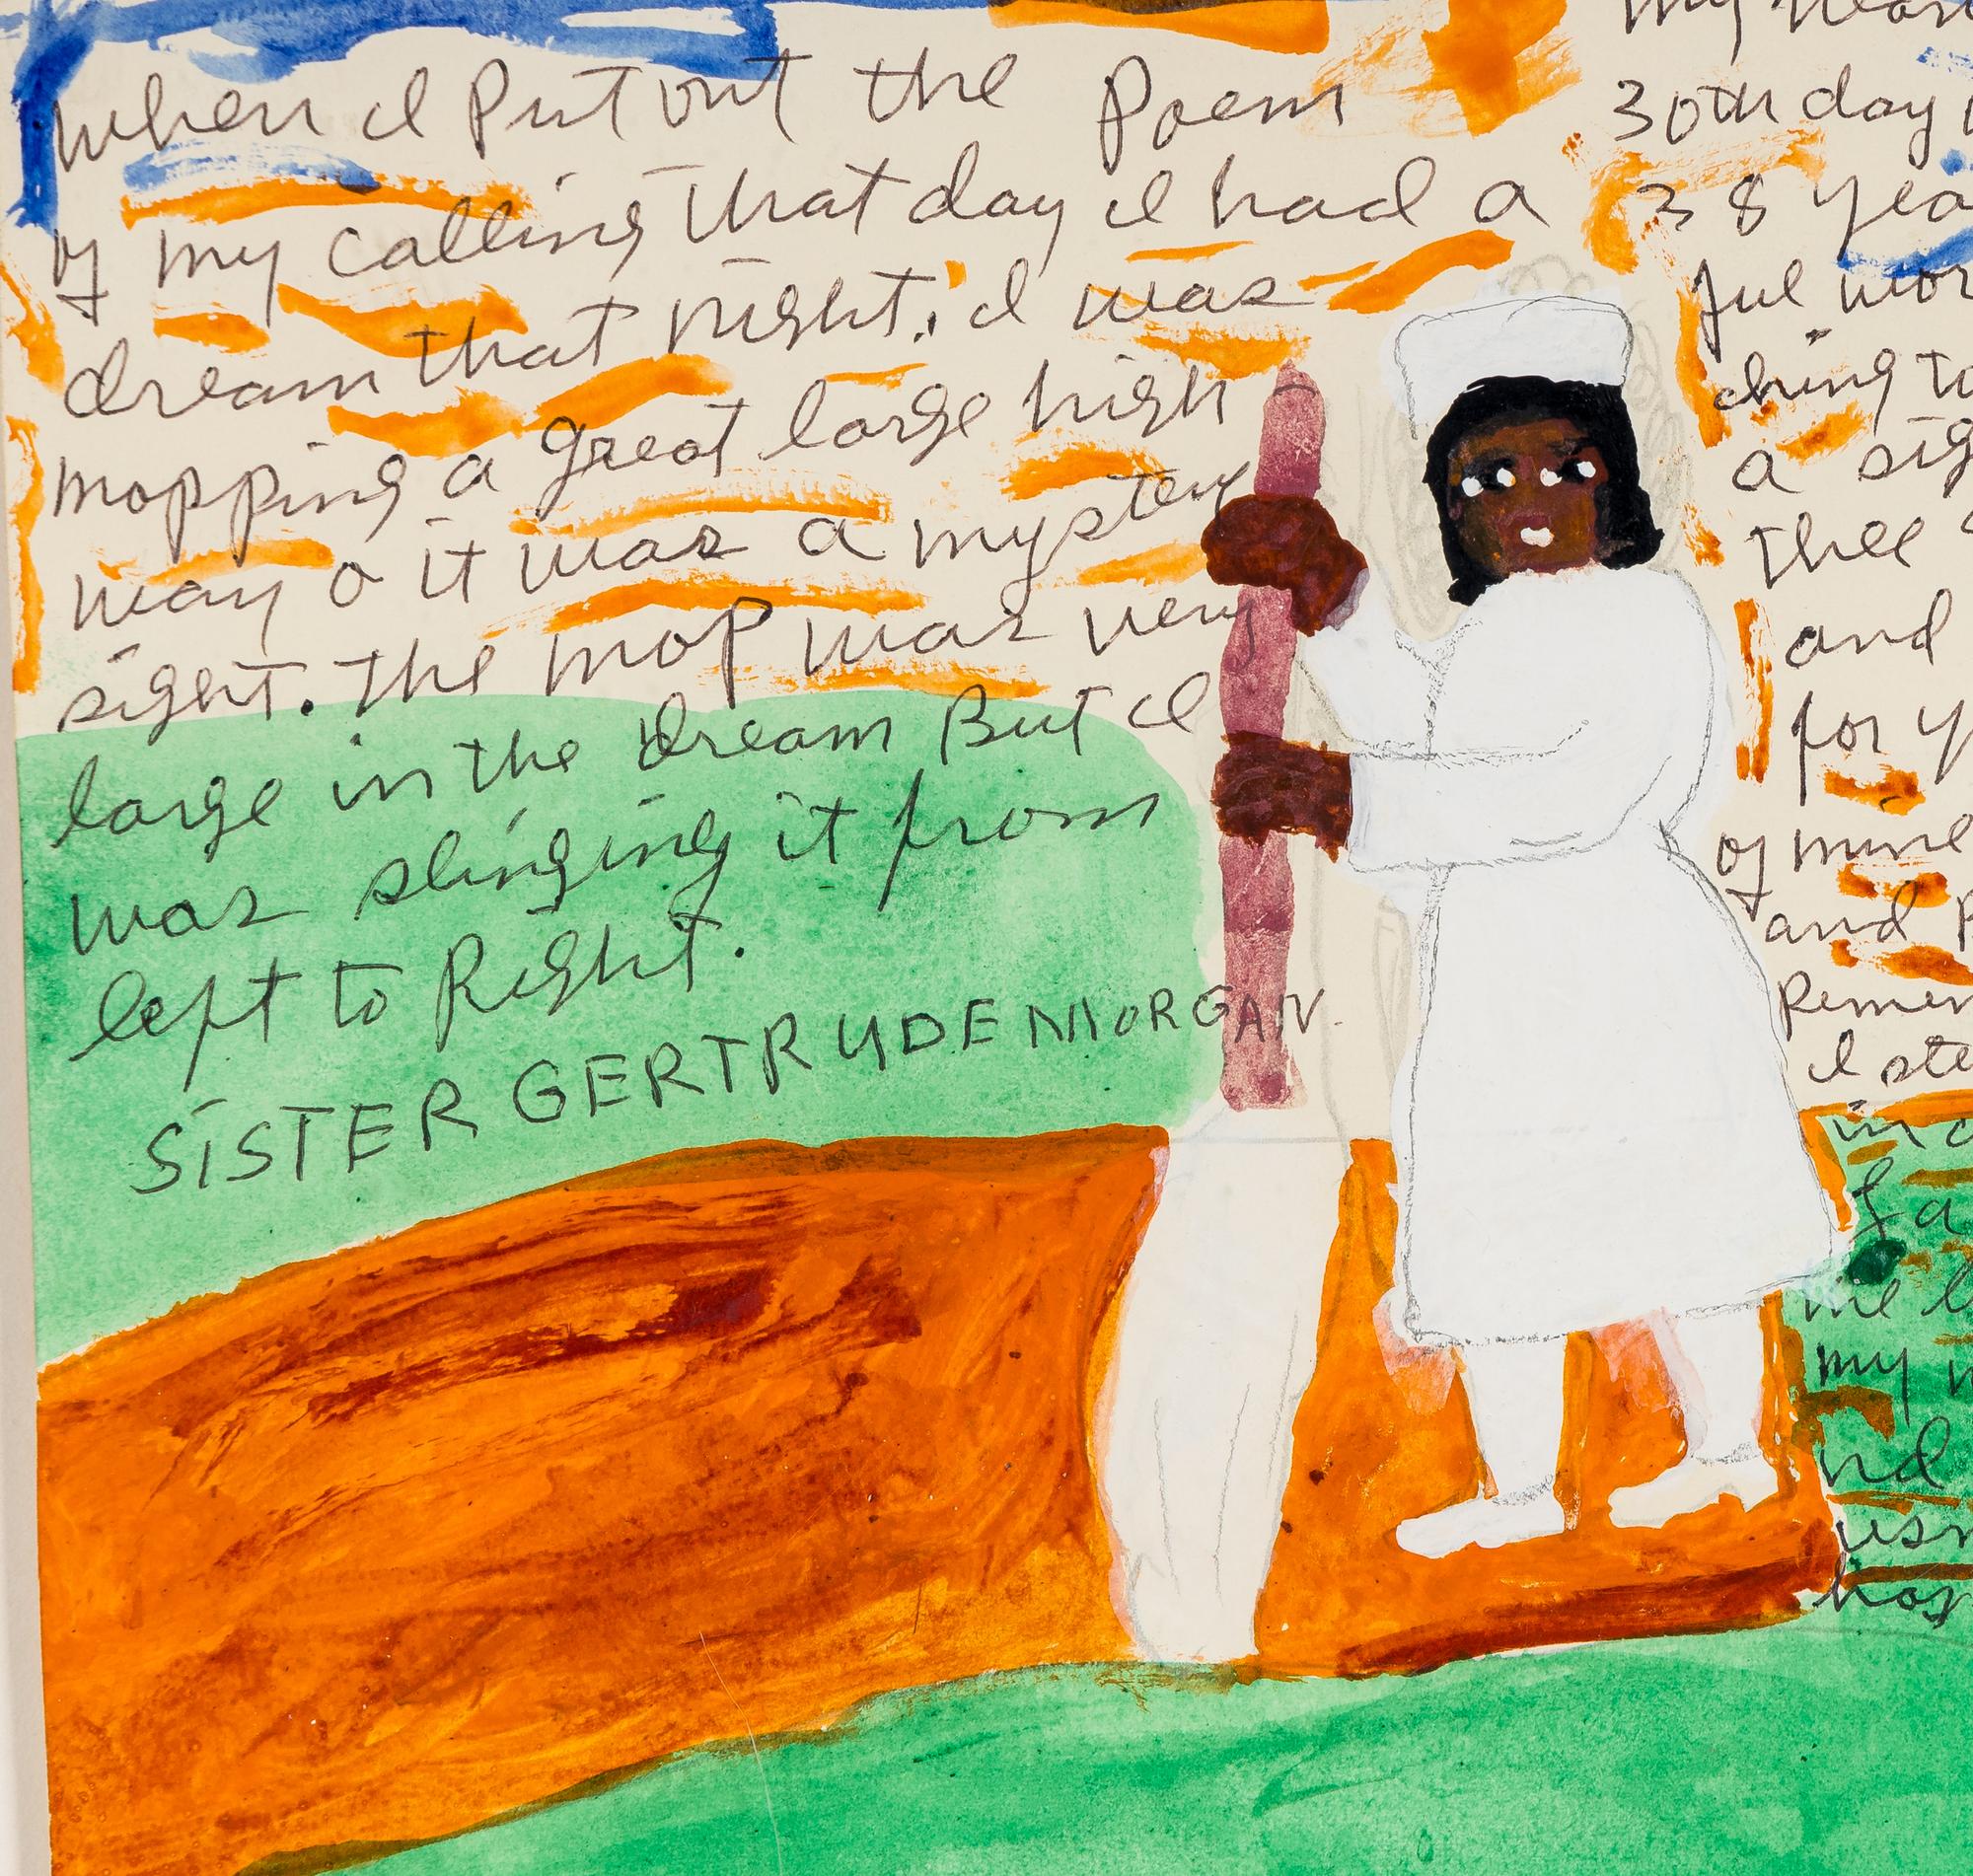 When I Put out the Poem
of my calling that day I had a
dream that night, I was
mopping a great large high
way o it was a mystery
sight. the mop was very
large in the dream But I
was slinging it from
left to Right.
SISTER GERTRUDE MORGAN.
my
30th day
38
ful
ching to
a
thee
and
for
of mine
and
I
me
my